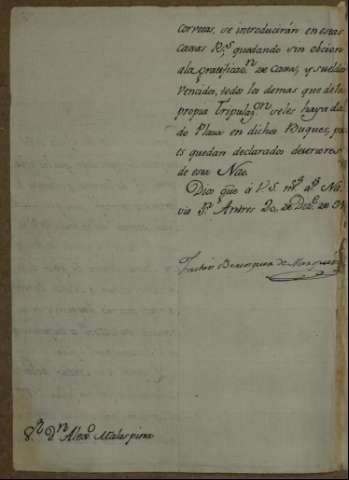 correos, se introducirán en estas
Caxas R.s quedando sin obcion
ala gratificaz.n de Casas, y sueldos
vencidos, todos los demas que de la
propia Tripulaz.on seles haya da-
do Plaza en dichos Buques, pu-
es quedan declarados desertores
de esta Nao.
Dios gue á V.S. m.s a.s Na-
vio S.n Andres 20 de Dez.e de
de
S.r D.n Alex.o Malaspina